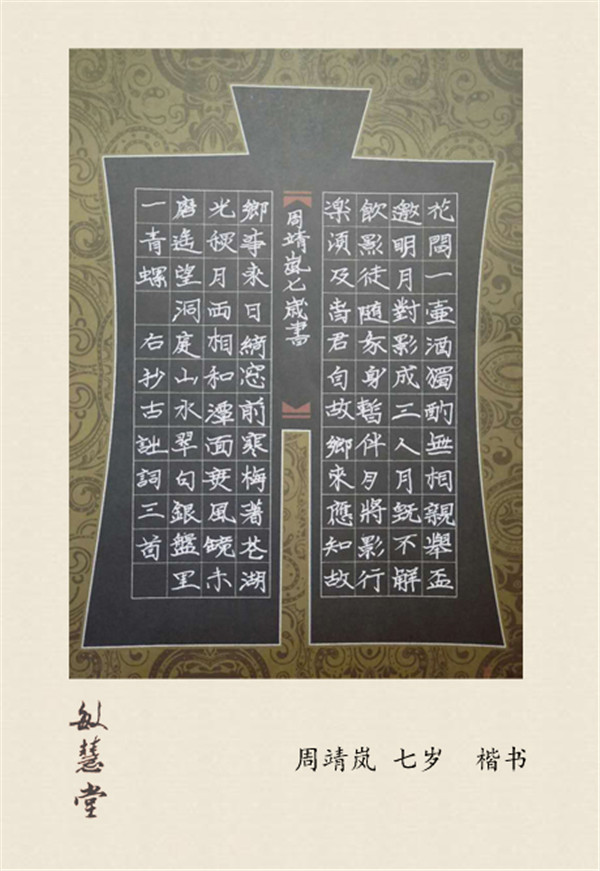 花間一壷酒獨酌無相親舉盃
邀明月對影成三人月既不解
飲影徒隨我身暫伴月將影行
樂須及春君自故鄉來應知故
周靖岚七歲書
鄉事来日綺窓前寒梅著花湖
光秋月两相和潭面無風鏡未
磨遥望洞庭山水翠白銀盤里
一青螺 右抄古詩詞三首
敏慧堂
周靖岚 七岁 楷书